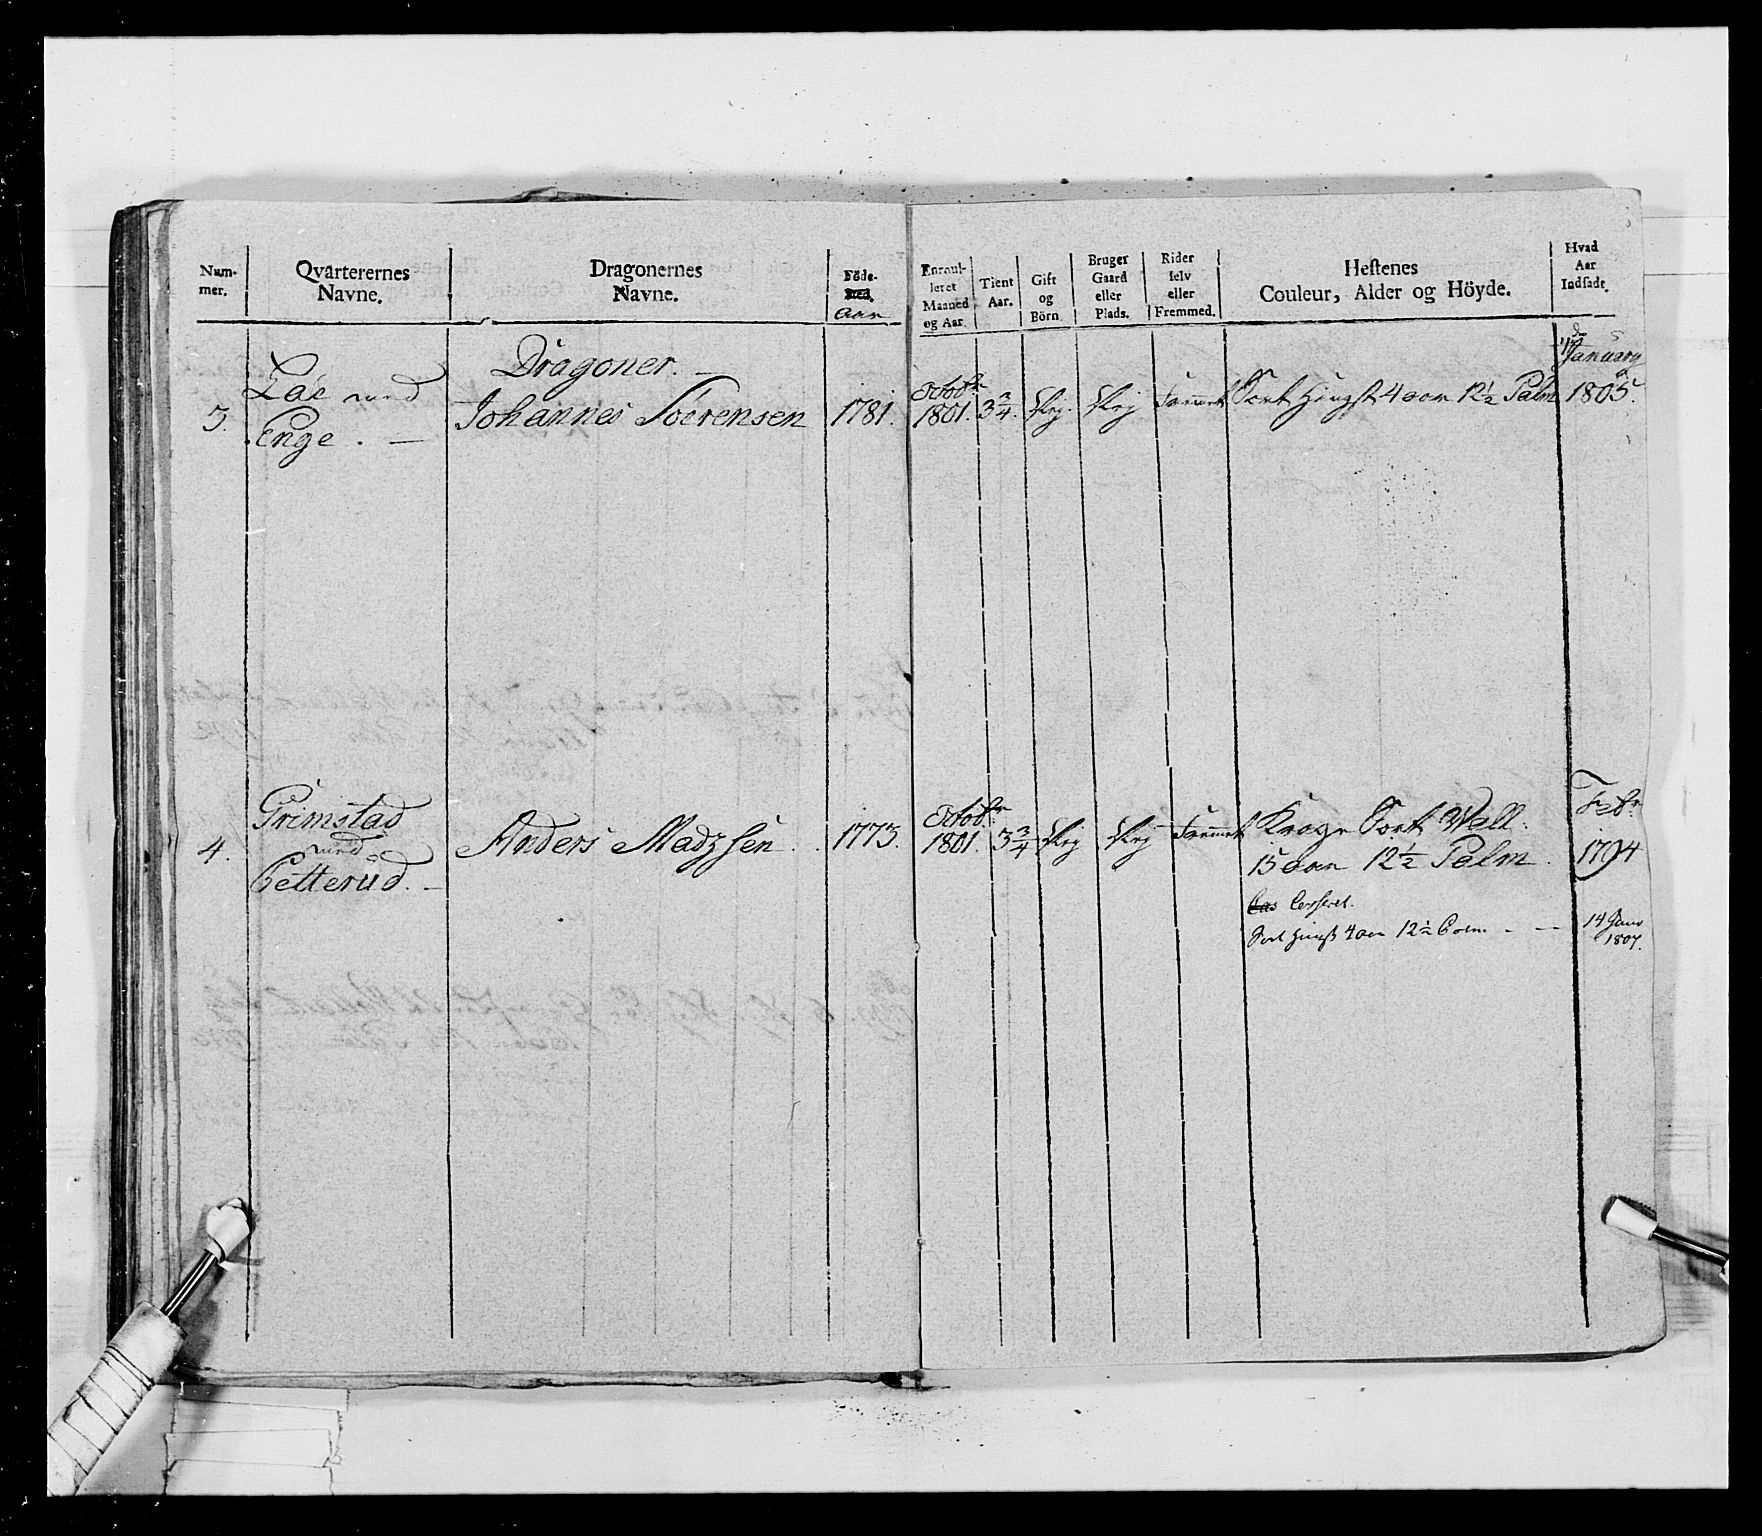 Num-
mer.
Qvarterernes
Navne.
Dragonernes
Navne.
Föde-
sted.
Aar
Enroul-
leret
Maaned
og Aar.
Tient
Aar.
Gift
og
Börn.
Bruger
Gaard
eller
Plads.
Rider
selv
eller
Fremmed.
Hestenes
Couleur, Alder og Höyde.
Hvad
Aar
Indsadt.
Dragoner.
3.
Laë med
Enge.
Johannes Soërensen
1781.
Octobr
1801.
3 3/4.
Nej
Nej
Fremmet
Sort Hingst 4 aar 12 1/2 Palm
January
1805.
4.
Grimstad
med
Petterud.
Anders Madzsen
1773.
Octobr:
1801.
3 3/4
Nej
Nej
Fremmet
Sort Wall:
15 aar 12 1/2 Palm.
Febr
1794
Casseret.
Sort Hingst 4 aar 12 1/2 Palm
14 Janv
1807.